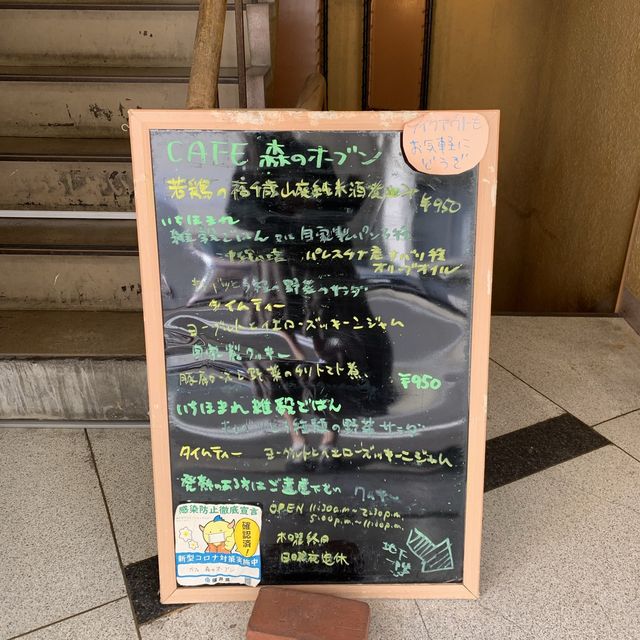 テイクアウトも
お気軽に
どうぞ
CAFE 森のオーブン
若鶏の福千歳山廃純米酒煮
¥950
いちほまれ
雑穀ごはん 又は 自家製パン3種
パレスチナ産ナバリ種
オリーブオイル
野菜サラダ
タイムティー
ヨーグルトとイエローズッキーニジャム
自家製クッキー
野菜のチリトマト煮
¥950
いちほまれ雑穀ごはん
種類の野菜サラダ
タイムティー ヨーグルトとイエローズッキーニジャム
発熱のある方はご遠慮下さい クッキー
OPEN 11:30a.m~2:30p.m.
5:00p.m.~11:00p.m.
木曜終日
日曜夜定休
地下
一階
感染防止徹底宣言
確認済!
新型コロナ対策実施中
カフェ 森のオーブン
福井県